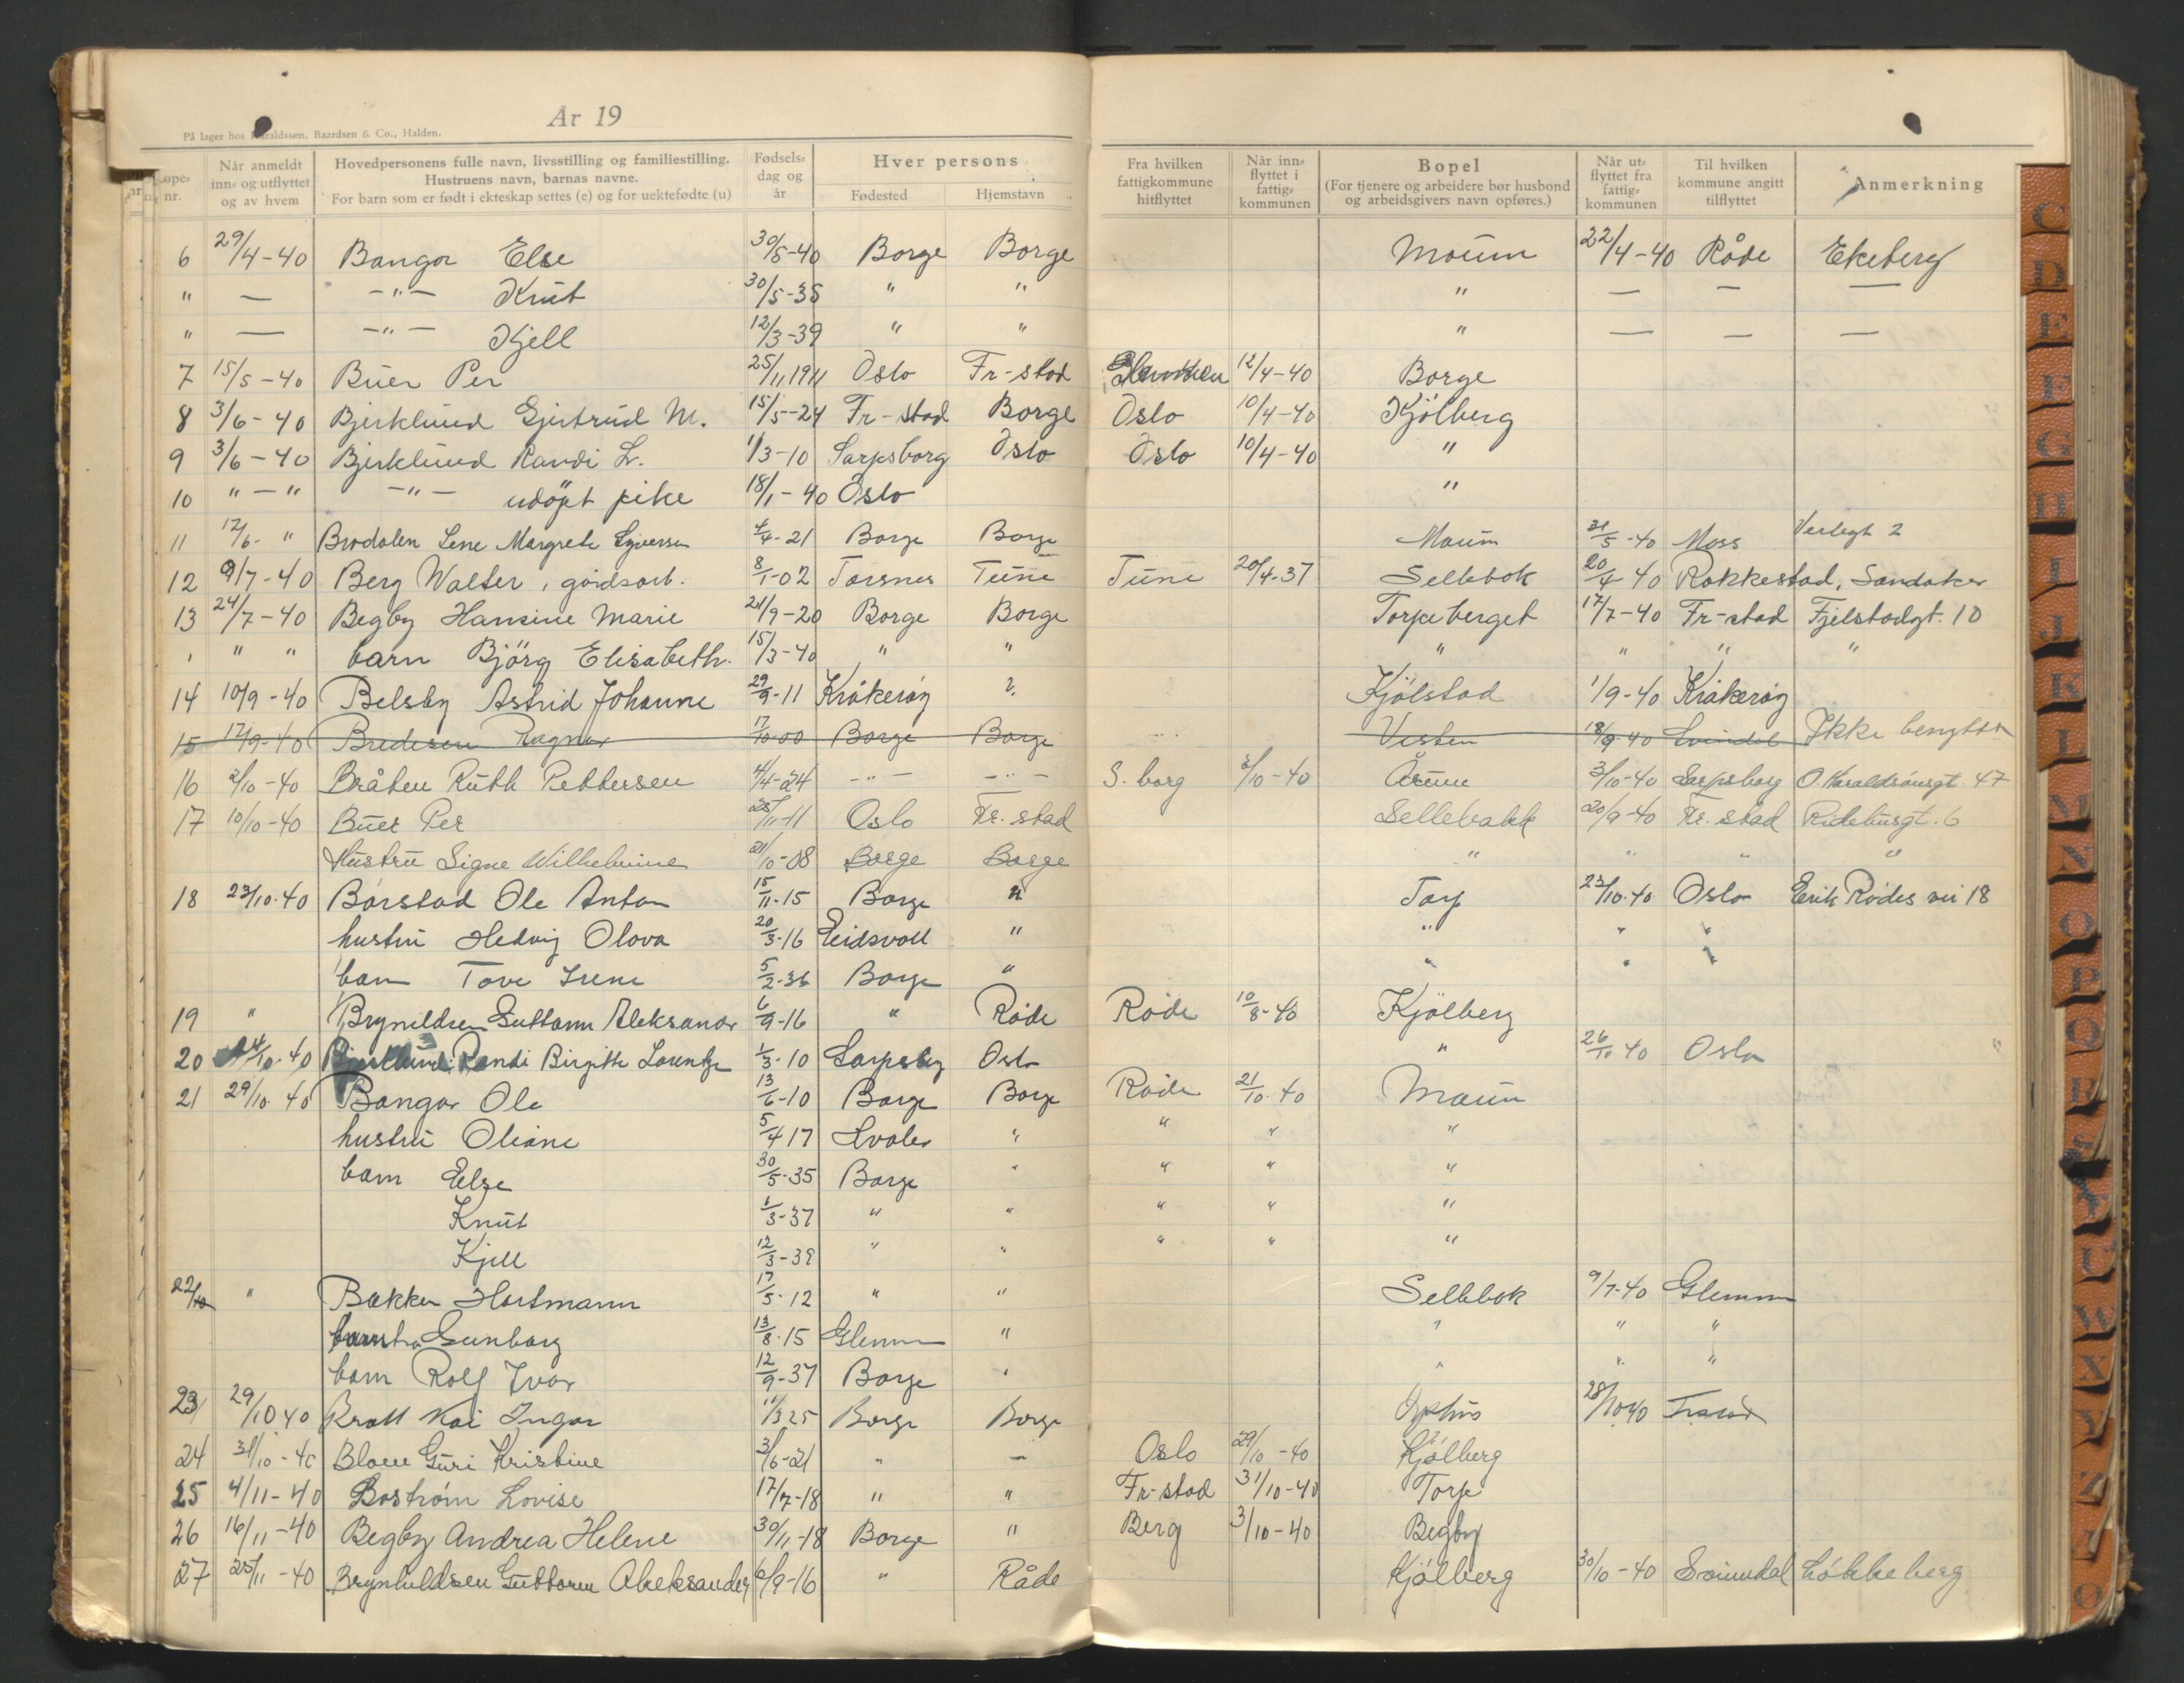 År 19
På lager hos Haraldssen, Baardsen & Co., Halden.
Løpe- nr. | Når anmeldt inn- og utflyttet og av hvem | Hovedpersonens fulle navn, livsstilling og familiestilling. Hustruens navn, barnas navne. For barn som er født i ekteskap settes (e) og for uektefødte (u) | Fødsels- dag og år | Hver persons Fødested | Hjemstavn | Fra hvilken fattigkommune hitflyttet | Når inn- flyttet i fattig- kommunen | Bopel (For tjenere og arbeidere bør husbond og arbeidsgivers navn opføres.) | Når ut- flyttet fra fattig- kommunen | Til hvilken kommune angitt tilflyttet | Anmerkning
6 29/4-40 Bangor Else 30/5-40 Borge Borge Moum 22/4-40 Råde Ekeberg
" — -"- Knut 30/5-35 " " " — — —
" — -"- Kjell 12/3-39 " " " — — —
7 15/5-40 Buer Per 25/11 1911 Oslo Fr-stad 12/4-40 Borge
8 3/6-40 Bjerklund Gjertrud M. 15/5-24 Fr-stad Borge Oslo 10/4-40 Kjølberg
9 3/6-40 Bjerklund Randi L. 1/3-10 Sarpsborg Oslo Oslo 10/4-40 "
10 "-" -"- udöpt pike 18/1-40 Oslo "
11 12/6- " Brodalen Lene Margrete Syversen 4/4-21 Borge Borge Moum 31/5-40 Moss Verlegt 2
12 9/7-40 Berg Walter, gårdsarb. 8/1-02 Torsnes Tune Tune 20/4-37 Sellebok 20/4-40 Rakkestad, Sandaker
13 24/7-40 Begby Hansine Marie 21/9-20 Borge Borge Torpeberget 17/7-40 Fr-stad Fjelstadgt. 10
" " barn Björg Elisabeth. 15/3-40 " " " " " "
14 10/9-40 Belsby Astrid Johanne 29/9-11 Kråkerøy ?. Kjölstad 1/9-40 Kråkerøy
15 17/9-40 Bredesen Ragnar 17/10-00 Borge Borge Visten 18/9-40 Svindal Ikke benyttet
16 2/10-40 Bråten Ruth Pettersen 4/4-24 -"- -"- S. borg 3/10-40 Årum 3/10-40 Sarpsborg O. Haraldsønsgt. 47
17 10/10-40 Buer Per 25/11-11 Oslo Fr. stad Sellebakk 20/9-40 Fr. stad Ridehusgt. 6
Hustru Signe Wilhelmine 21/10-08 Borge Borge " " " "
18 23/10-40 Børstad Ole Anton 15/11-15 Borge " Torp 23/10-40 Oslo Erik Rødes vei 18
hustru Hedvig Olova 20/3-16 Eidsvoll " " " "
barn Tove Irene 5/2-36 Borge " " " "
19 " Brynildsen Guttorm Aleksander 6/9-16 " Råde Råde 10/8-40 Kjølberg
20 24/10-40 Bjerklund Randi Birgitte Lorentze 1/3-10 Sarpsbg Oslo " 26/10 40 Oslo
21 29/10-40 Bangor Ole 13/6-10 Borge Borge Råde 21/10-40 Moum
hustru Oliane 5/4 17 Hvaler " " " "
barn Else 30/5-35 Borge " " " "
Knut 1/3-37 " " " " "
Kjell 12/3-39 " " " " "
22/10 " Bakken Hartmann 17/5-12 " " Sellebok 9/7-40 Glemm
Gunborg 13/8-15 Glemm " " " "
barn Rolf Ivar 12/9-37 Borge " " " "
23 29/10 40 Bratt Kai Ingar 11/3 25 Borge Borge Opphus 28/10 40
24 31/10-40 Blom Guri Kristine 3/6-21 " — Oslo 29/10-40 Kjølberg
25 4/11-40 Boström Lovise 17/7-18 " " Fr-stad 31/10-40 Torp
26 16/11-40 Begby Andrea Helene 30/11-18 Borge " Berg 3/10-40 Begby
27 25/11-40 Brynhuldsen Guttorm Aleksander 6/9-16 " Råde Kjølberg 30/10-40 Svinndal Løkkeberg